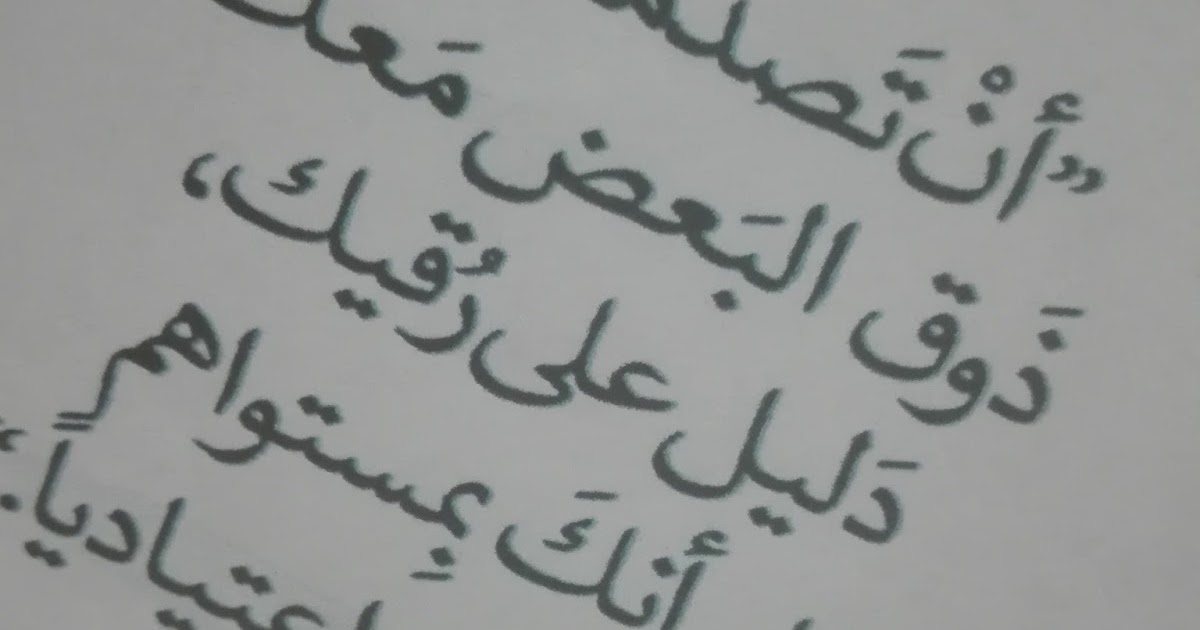 "أنْ تَصلك
ذَوق البَعض مَعك
دَليل على رُقيك،
أنكَ بِمستواهم
اعتيادياً.